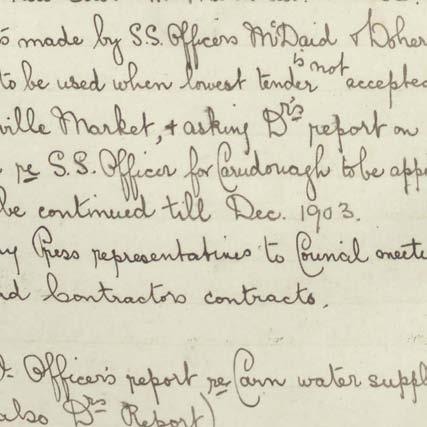 s made by S.S. Officers McDaid & Doher
to be used when lowest tender is not accepted
ville Market, & asking Dr's report on
re S.S. Officer for Carndonagh to be app
be continued till Dec. 1903.
ny Press representatives to Council meeti
nd Contractors contracts.
Officer's report re Carn water suppl
also Drs Report)